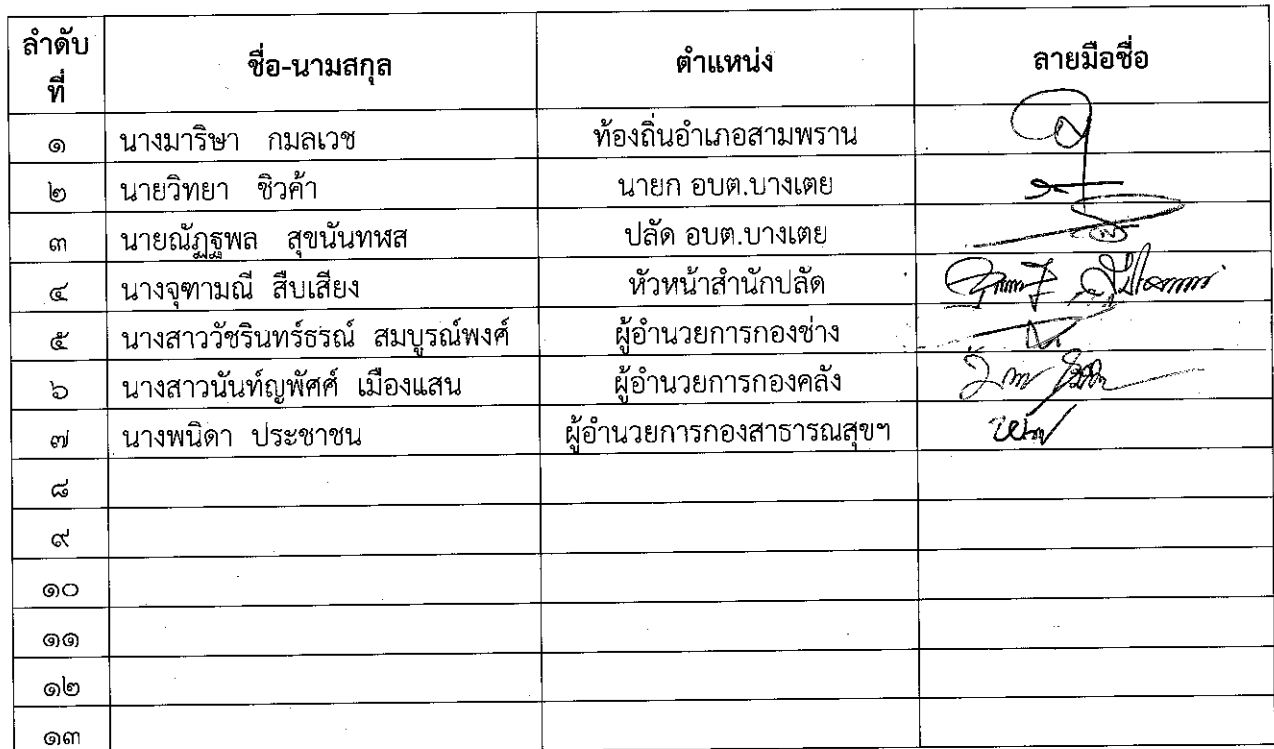 ลำดับที่ ชื่อ-นามสกุล ตำแหน่ง ลายมือชื่อ
๑ นางมาริษา กมลเวช ท้องถิ่นอำเภอสามพราน
๒ นายวิทยา ชิวค้า นายก อบต.บางเตย
๓ นายณัฏฐพล สุขนันทฬส ปลัด อบต.บางเตย
๔ นางจุฑามณี สืบเสียง หัวหน้าสำนักปลัด
๕ นางสาววัชรินทร์ธรณ์ สมบูรณ์พงศ์ ผู้อำนวยการกองช่าง
๖ นางสาวนันท์ญพัศศ์ เมืองแสน ผู้อำนวยการกองคลัง
๗ นางพนิดา ประชาชน ผู้อำนวยการกองสาธารณสุขฯ
๘
๙
๑๐
๑๑
๑๒
๑๓